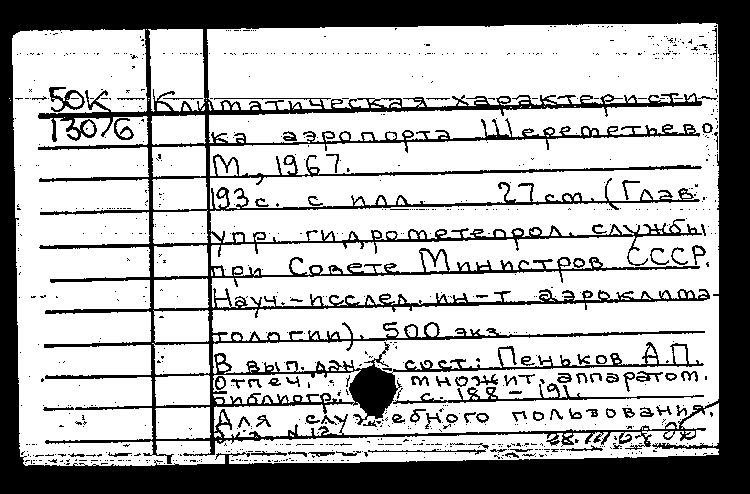 50К Климатическая характеристи-
130/6 ка аэропорта Шереметьево.
М., 1967.
193с. с илл. 27см. (Глав.
упр. гидрометеорол. службы
при Совете Министров СССР.
Науч.-исслед. ин-т аэроклима-
тологии). 500 экз.
В вып. дан. сост.: Пеньков А.П.
Отпеч. множит. аппаратом.
Библиогр. с. 188 - 191.
Для служебного пользования.
Экз. N12
28.III.68